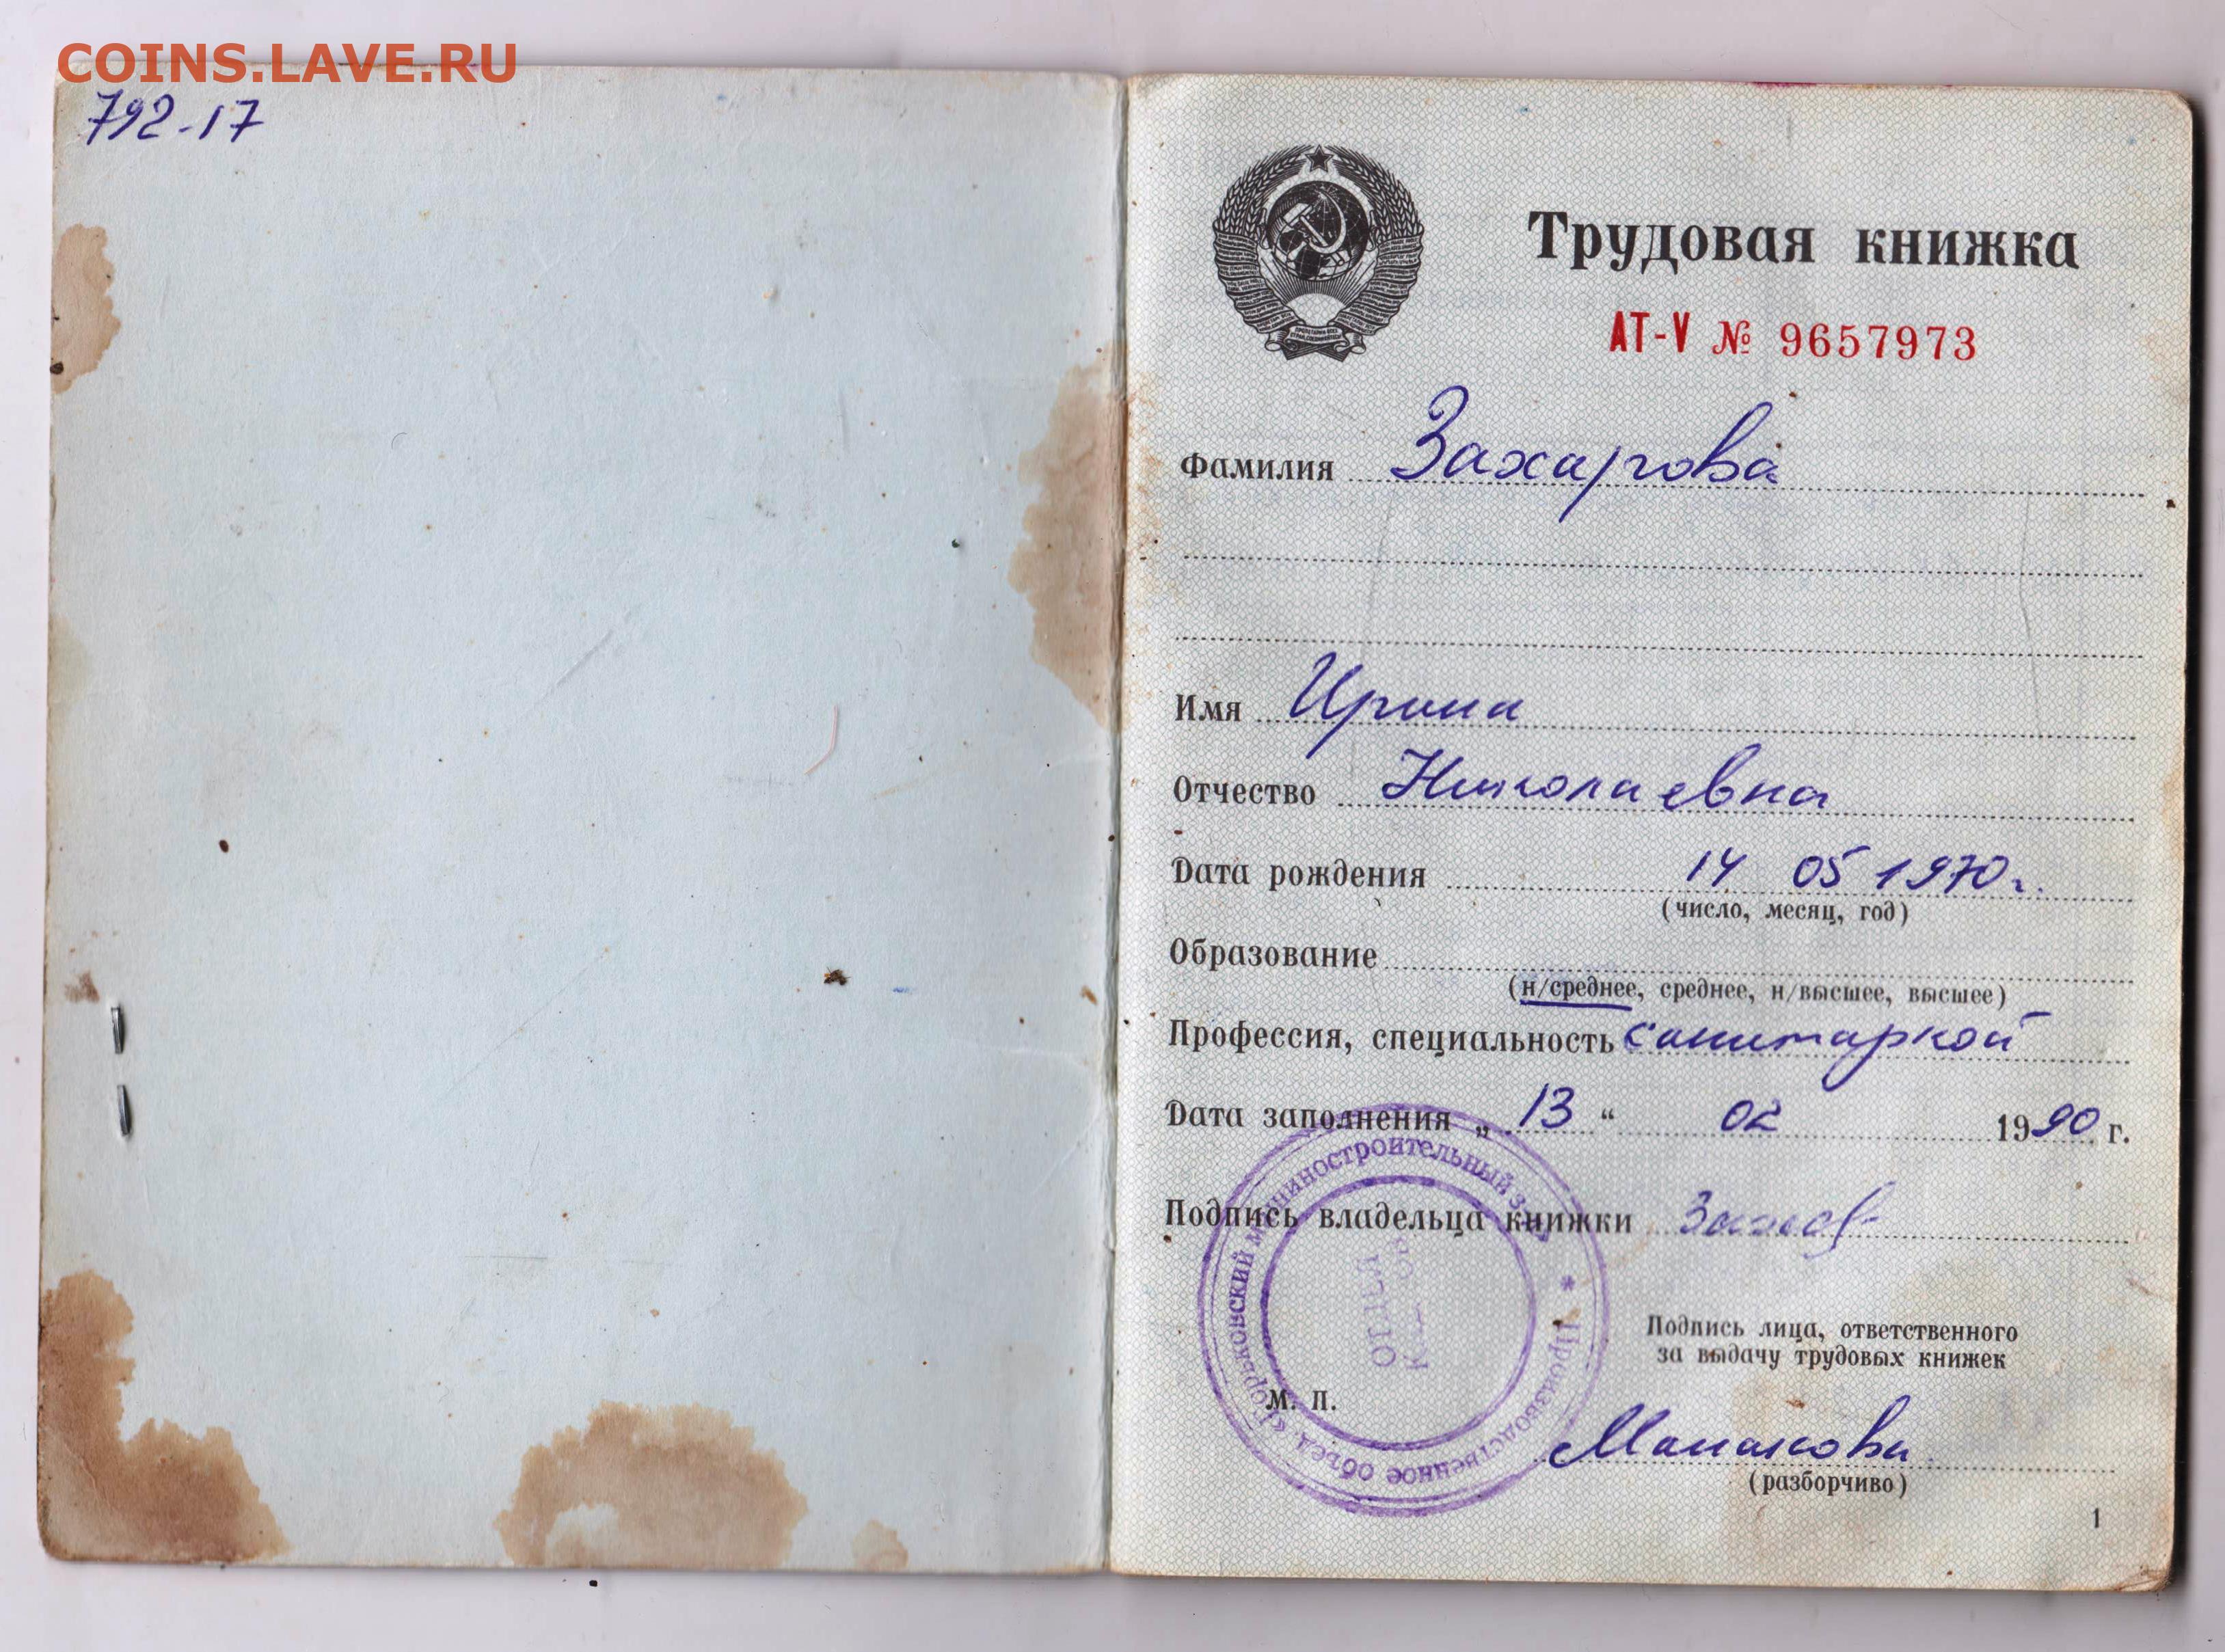 COINS.LAVE.RU
792-17
Трудовая книжка
АТ-V № 9657973
Фамилия Захарова
Имя Ирина
Отчество Николаевна
Дата рождения 14 05 1970 г.
(число, месяц, год)
Образование
(н/среднее, среднее, н/высшее, высшее)
Профессия, специальность санитаркой
Дата заполнения „ 13 “ 02 1990 г.
Подпись владельца книжки
Подпись лица, ответственного
за выдачу трудовых книжек
М. П.
(разборчиво)
1
* Производственное объед. «Горьковский машиностроительный
ОТДЕЛ